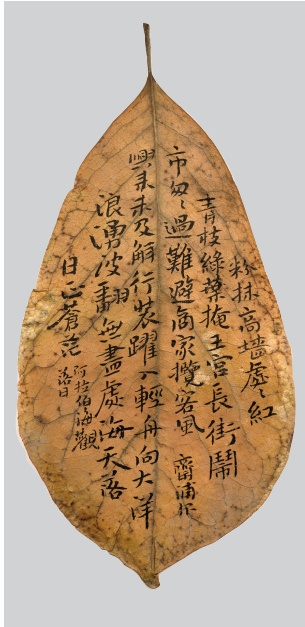 粉抹高墻處〻紅
青枝綠葉掩王宮長街鬧
市匆〻過難避商家攬客風 齋浦尔
興來未及解行裝躍入輕舟向大洋
浪湧波翻無盡處海天落
日正蒼茫
阿拉伯海觀
落日